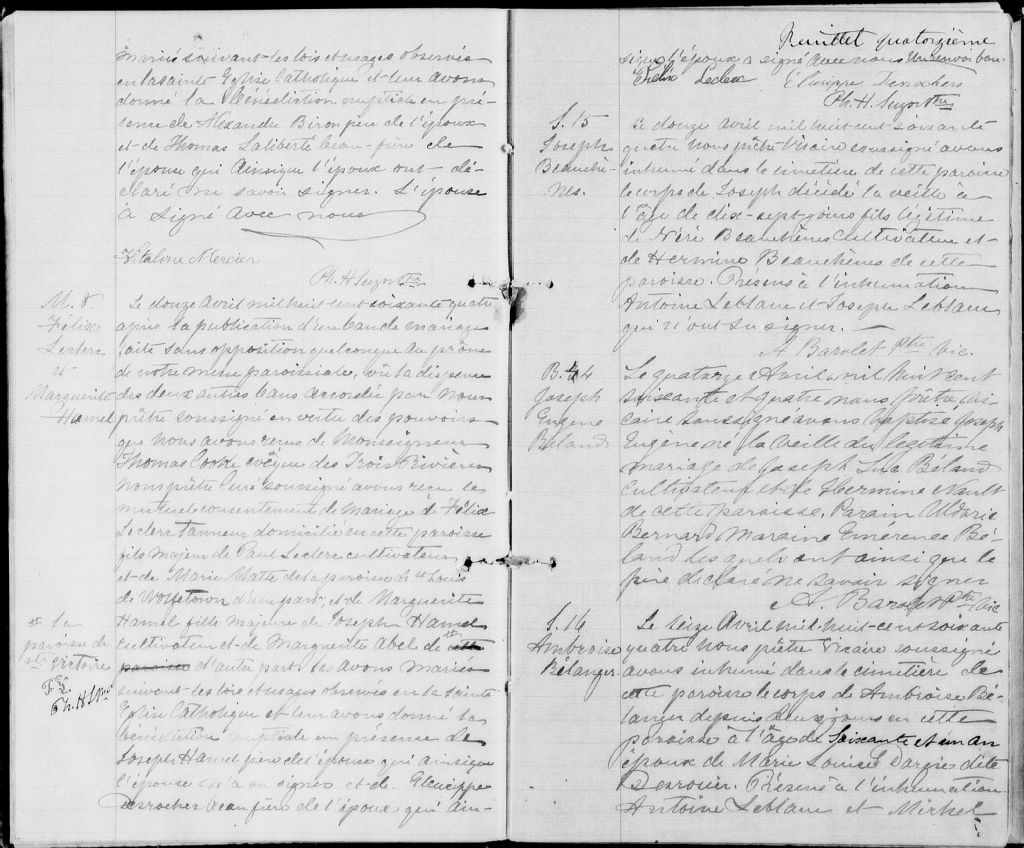 mariés suivant les lois et usages observés
en la sainte Eglise Catholique et leur avons
donné la Bénédiction nuptiale en pré-
sence de Alexandre Biron père de l'époux
et de Thomas Laliberté beau-père de
l'épouse qui ainsi que l'époux ont dé-
claré ne savoir signer. L'épouse
à signé avec nous
Vitaline Mercier
Ph. H. Suzor Ptre
M. 8
Félix
Leclerc
et
Marguerite
Hamel
Le douze Avril mil huit cent soixante quatre
après la publication d'un ban de mariage
faite sans opposition quelconque au prône
de notre messe paroissiale, vû la dispense
des deux autres bans accordée par nous
prêtre soussigné en vertu des pouvoirs
que nous avons reçus de Monseigneur
Thomas Cooke evêque des Trois Rivières
nous prêtre curé soussigné avons reçu le
mutuel consentement de mariage de Félix
Leclerc tanneur domicilié en cette paroisse
fils majeur de Paul Leclerc cultivateur
et de Marie Matte de la paroisse de St Louis
de Wolfetown d'une part; et de Marguerite
Hamel fille majeure de Joseph Hamel
cultivateur et de Marguerite Abel de # cette
paroisse d'autre part les avons mariés
suivant les lois et usages observés en la sainte
Eglise Catholique et leur avons donné la
bénédiction nuptiale en présence de
Joseph Hamel père de l'épouse qui ainsi que
l'épouse n'a su signer et de Eleusippe
Desrochers beau frère de l'époux qui ain-
# la
paroisse de
Ste Victoire
F. L.
Ph. H. S. Ptre
Renvoi quatorzième
si que l'époux a signé avec nous un renvoi bon
Félix Leclerc Eleusippe Desrochers
Ph. H. Suzor Ptre
S. 15
Joseph
Beauchê-
nes.
Le douze Avril mil huit cent soixante
quatre nous prêtre Vicaire soussigné avons
inhumé dans le cimetière de cette paroisse
le corps de Joseph décédé la veille à
l'âge de dix-sept jours fils légitime
de Néré Beauchênes cultivateur et
de Hermine Beauchênes de cette
paroisse. Présens à l'inhumation
Antoine Leblanc et Joseph Leblanc
qui n'ont su signer.
A Barolet ptre Vic.
B. 44
Joseph
Eugène
Béland
Le quatorze Avril mil huit cent
soixante et quatre nous, prêtre, vi-
caire soussigné avons baptisé Joseph
Eugène né la veille du légitime
mariage de Joseph Béland
cultivateur et de Hermine Nault
de cette paroisse. Parain Uldaric
Bernard Maraine Emérence Bé-
land lesquels ont ainsi que le
père déclaré ne savoir signer
A. Barolet Ptre Vic
S. 16
Ambroise
Bélanger.
Le seize Avril mil huit-cent soixante
quatre nous prêtre Vicaire soussigné
avons inhumé dans le cimetière de
cette paroisse le corps de Ambroise Bé-
langer depuis deux jours en cette
paroisse à l'âge de soixante et un an
époux de Marie Louise Dargis dite
Desrosier. Présens à l'inhumation
Antoine Leblanc et Michel